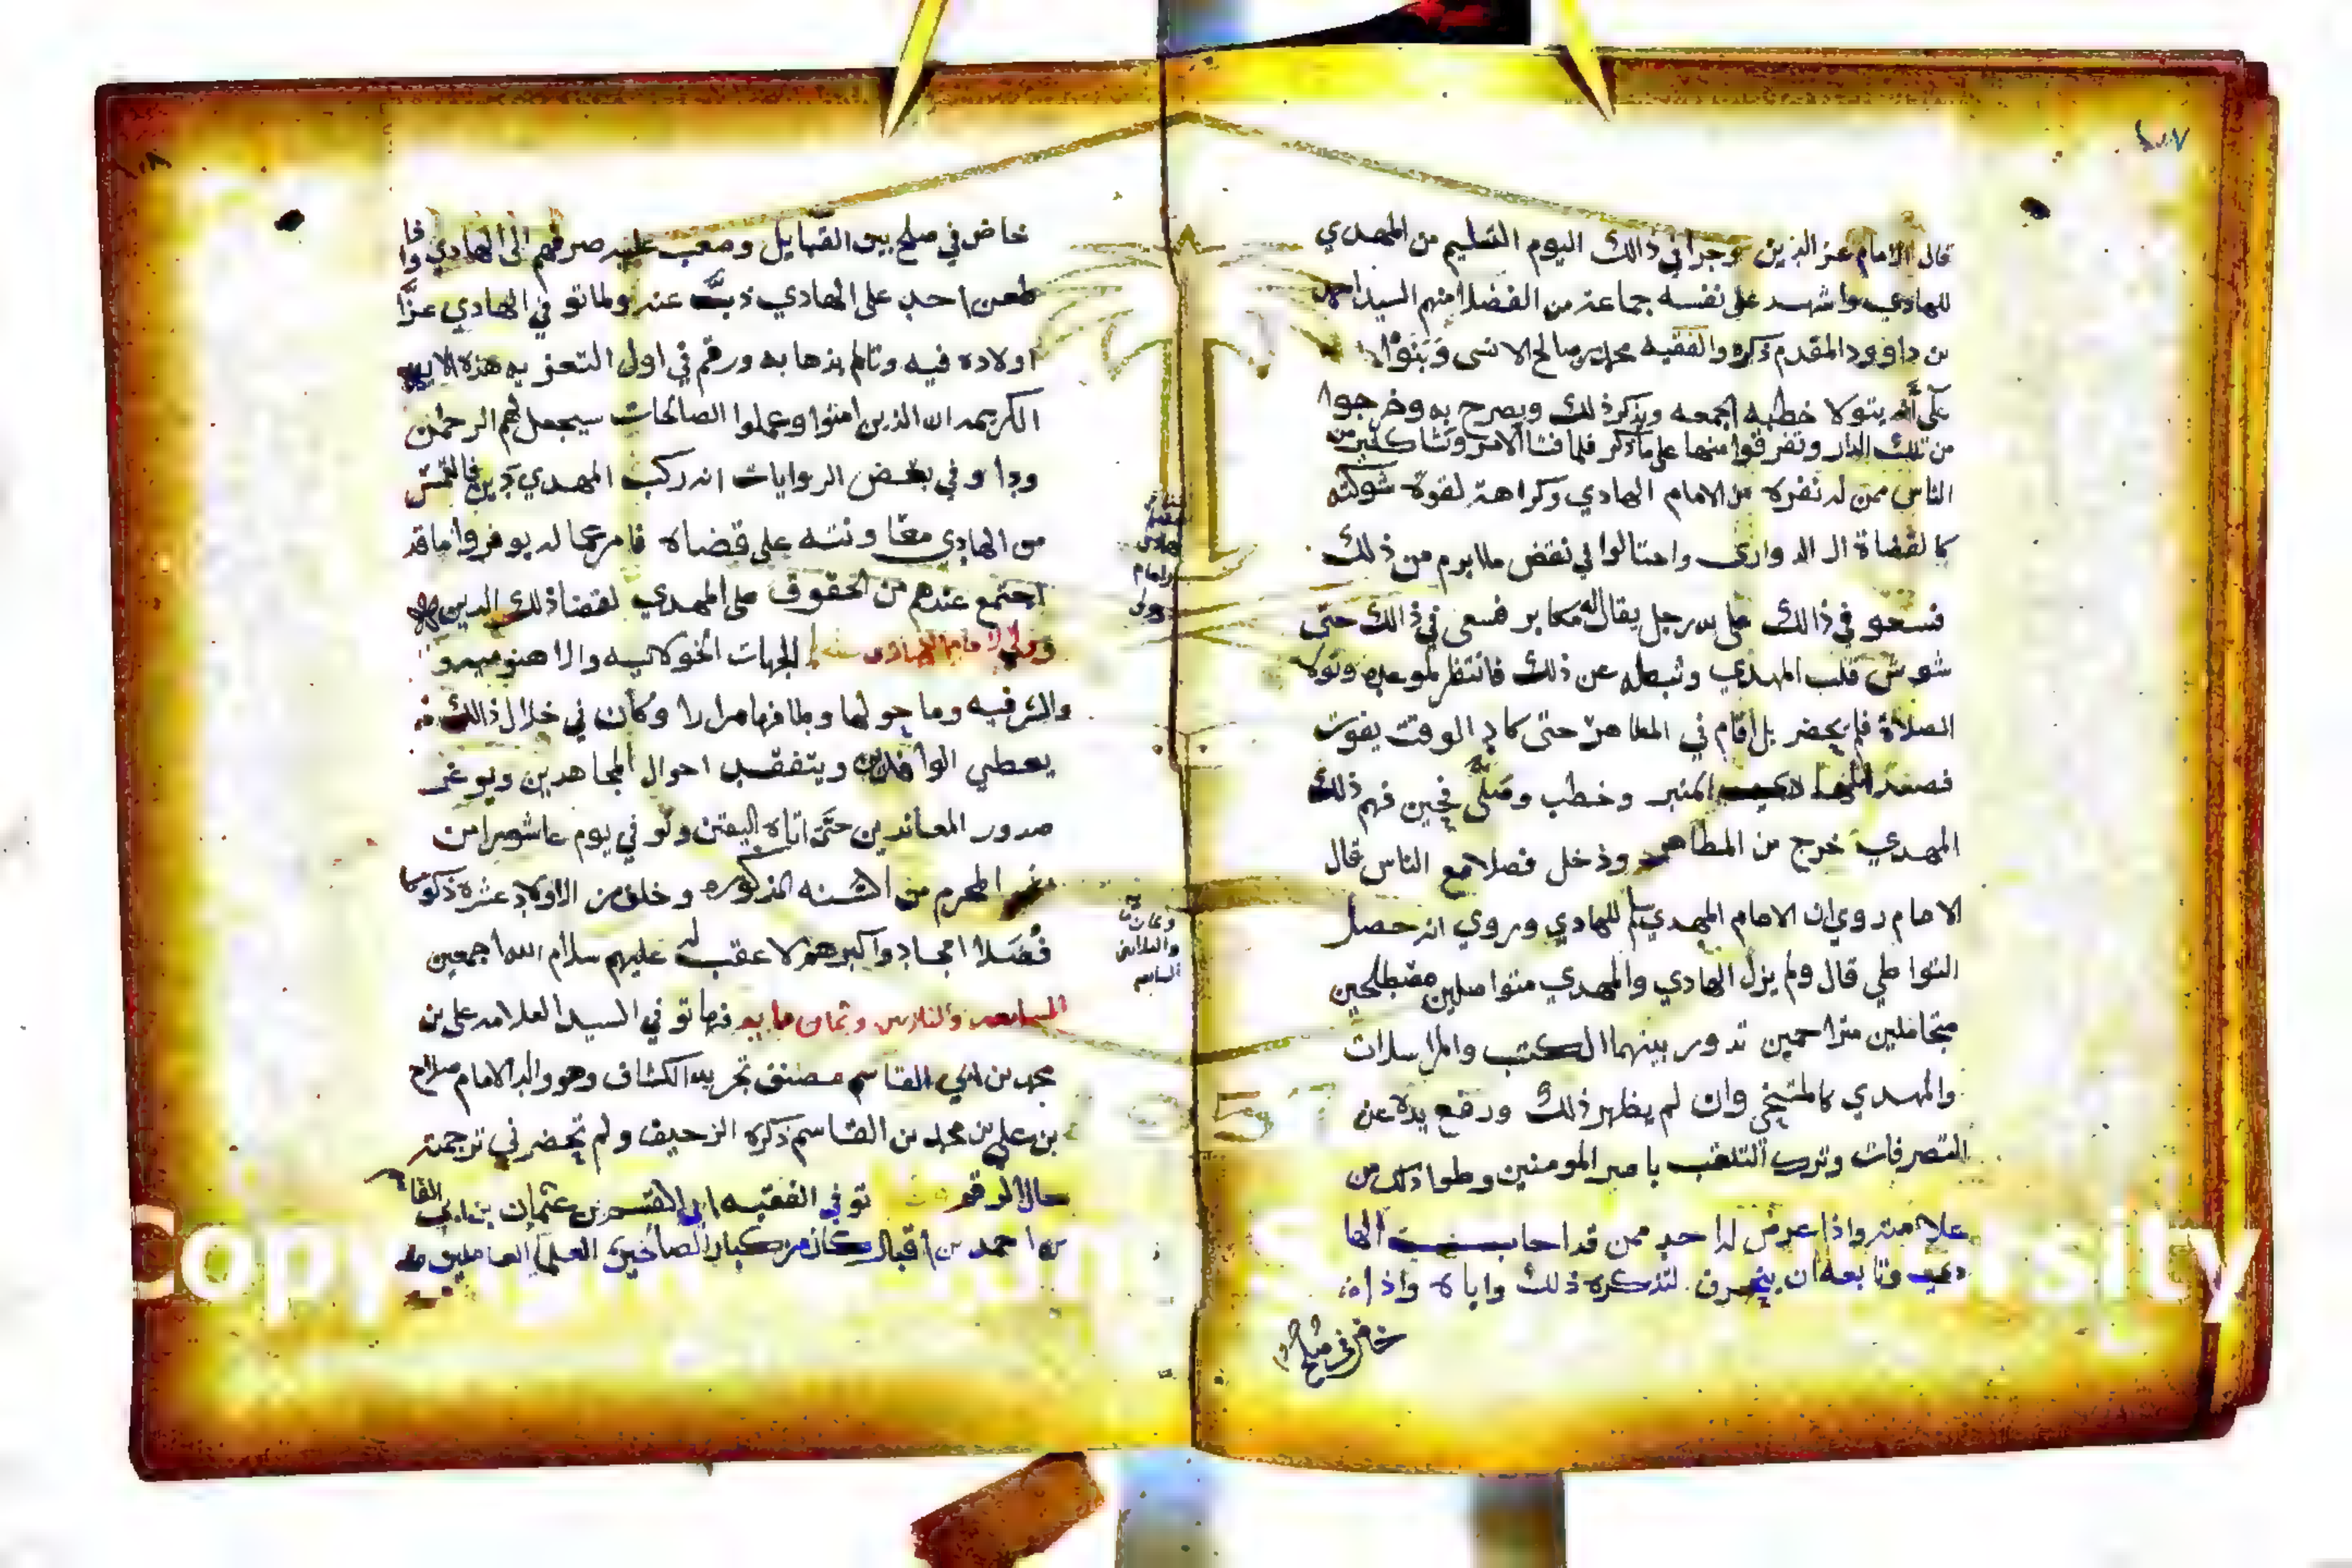 ١٠٧
قال الامام عز الدين وجرا في ذالك اليوم التسليم من المهدي
للهادي واشهد على نفسه جماعة من الفضلا منهم السيد احمد
بن داوود المقدم ذكره والفقيه محمد بن صالح الانسي وبنوا
على أنه يتولا خطبه الجمعه ويذكر ذلك ويصرح به وخرجوا
من تلك الدار وتفرقوا منها على ما ذكر فلما فشا الامر وتشا كثير من
الناس ممن له نفره من الامام الهادي وكراهة لقوة شوكته
كالقضاة ال الدواري واحتالوا في نقض ما ابرم من ذلك
فسعو في ذالك على يد رجل يقال له مكابر فسعى في ذالك حتى
شوش قلب المهدي وثبطه عن ذلك فانتظر لموعده وتولا
الصلاة فلم يحضر بل اقام في المطاهر حتى كاد الوقت يفوت
فصعد المنبر وخطب وصلى فحين فهم ذلك
المهدي خرج من المطاهر ودخل فصلا مع الناس قال
الامام روي ان الامام المهدي سلم للهادي وروي انه حصل
التواطي قال ولم يزل الهادي والمهدي متواصلين مصطلحين
متجاملين متراحمين تدور بينهما الكتب والمراسلات
والمهدي كالمتنحي وان لم يظهر ذلك ورفع يده عن
التصرفات وترك التلقب بامير المومنين وطوا ذلك من
علامته واذا عرض له احد ممن قد اجاب الها
دي وتابعه ان ينحرف لتذكره ذلك واباه واذا
خاض في صلح
١٠٨
خاض في صلح بين القبايل وصعب عليه صرفهم الى الهادي وا
طعن احد على الهادي ذبَّ عنه ولما توفي الهادي عزا
اولاده فيه وتالم بذهابه ورقم في اول التعزيه هذه الايه
الكريمه ان الذين امنوا وعملوا الصالحات سيجعل لهم الرحمن
ودا وفي بعض الروايات انه ركب المهدي دين فالتمس
من الهادي معا ونته على قضاه فامر عماله يوفروا ما قد
اجتمع عندهم من الحقوق على المهدي لقضا ذلك الدين
وولي الجهات الخولانيه والاهنوميه و
والشرفيه وما حولها وطافها مرارا وكان في خلال ذالك
يعطي الوافدين ويتفقد احوال المجاهدين ويوغر
صدور المعاندين حتى اتاه اليقين وتوفي في يوم عاشورا من
المحرم من السنه المذكوره وخلف من الاولاد عشرة ذكورا
فُضَلا امجاد واكبرهم لا عقب له عليهم سلام الله اجمعين
السابعه والثلاثين وثمان مايه فيها توفي السيد العلامه علي بن
محمد بن ابي القاسم مصنف تجريد الكشاف وهو والد الامام صلاح
بن علي بن محمد بن القاسم ذكره الزحيف ولم تحضرني ترجمته
حال الرقم توفي الفقيه ابي القسم بن عثمان بن ابي القا
بن احمد بن اقبال كان من كبار الصالحين العلما العاملين
وثمان
والثلاثين
السابعه